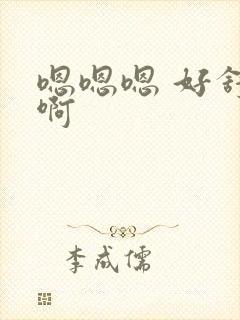 嗯嗯嗯 好舒
啊
李成儒